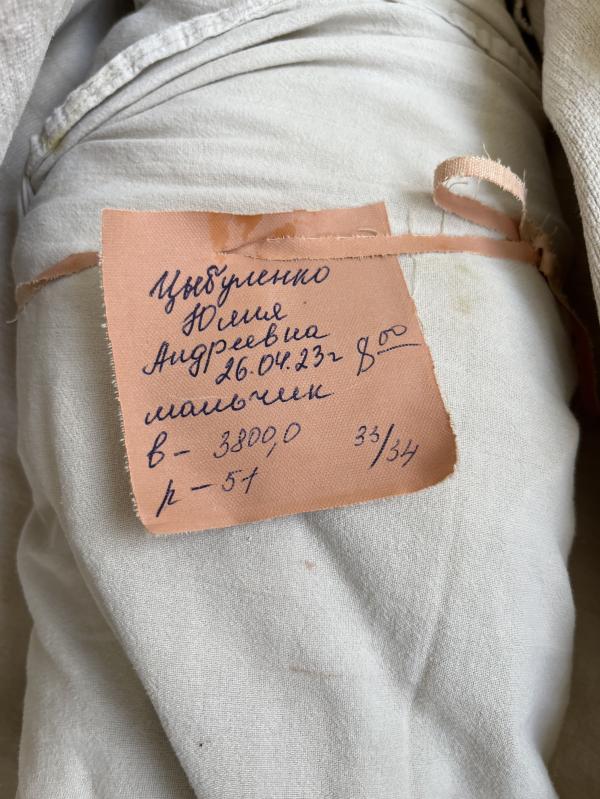 Цыбуленко
Юлия
Андреевна
26.04.23г 8⁰⁰
мальчик
в - 3800,0 33/34
р - 51